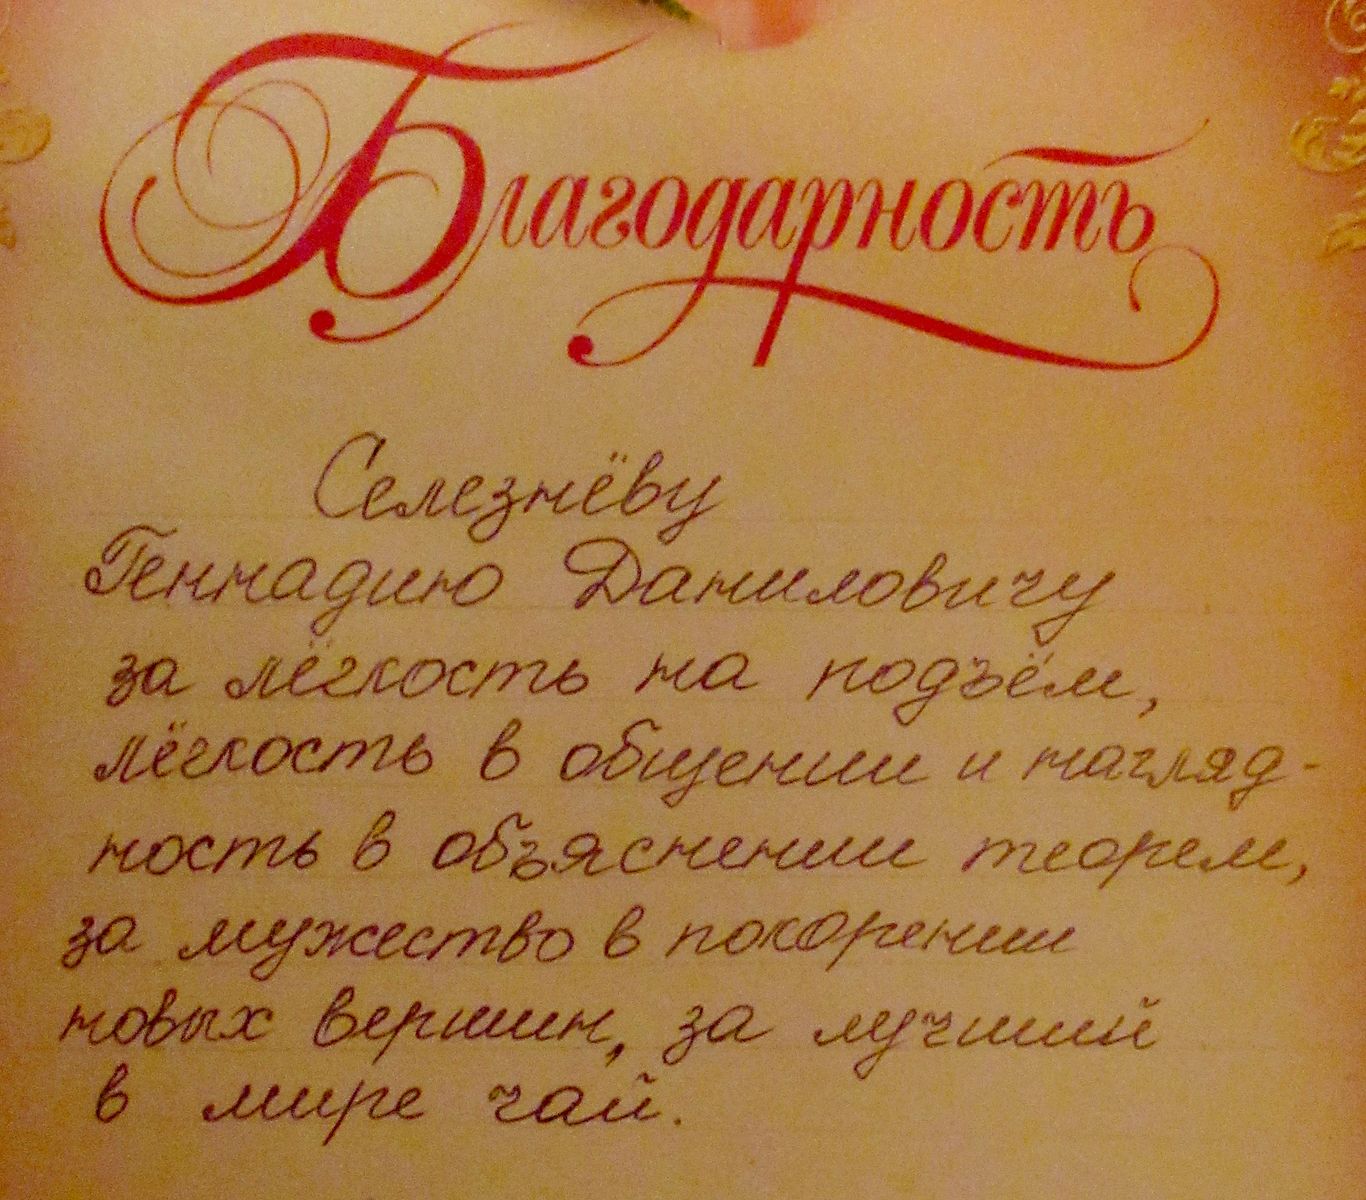 Благодарность
Селезнёву
Геннадию Даниловичу
за лёгкость на подъём,
лёгкость в общении и нагляд-
ность в объяснении теорем,
за мужество в покорении
новых вершин, за лучший
в мире чай.